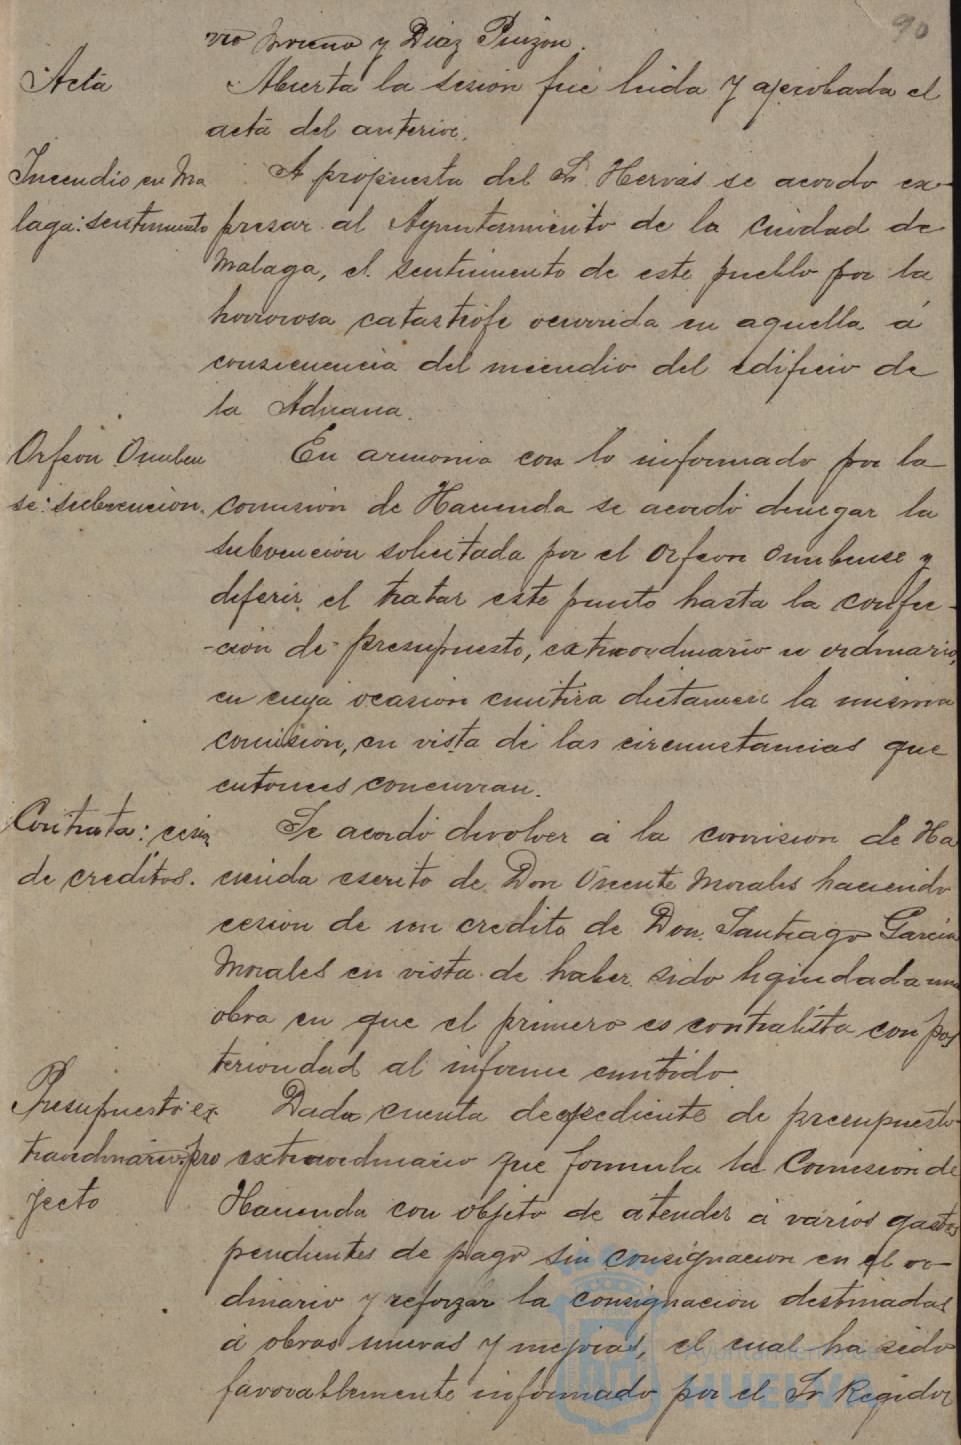 90
vio Moreno y Diaz Pinzon.
Acta
Abierta la sesion fué leida y aprobada el
acta del anterior.
Incendio en Ma
laga: sentimiento
A propuesta del Sr. Hervás se acordo ex-
presar al Ayuntamiento de la Ciudad de
Malaga, el sentimiento de este pueblo por la
horrorosa catastrofe ocurrida en aquella á
consecuencia del incendio del edificio de
la Aduana.
Orfeon Onuben
se: subvencion.
En armonia con lo informado por la
comision de Hacienda se acordó denegar la
subvencion solicitada por el Orfeon Onubense y
deferir el tratar este punto hasta la confec-
-cion de presupuesto, extraordinario u ordinario,
en cuya ocasion emitira dictamen la misma
comision, en vista de las circunstancias que
entonces concurran.
Contrata: cesion
de creditos.
Se acordó devolver á la comision de Ha
cienda escrito de Don Vicente Morales haciendo
cesion de un credito de Don Santiago Garcia
Morales en vista de haber sido liquidada una
obra en que el primero es contratista con pos
terioridad al informe emitido.
Presupuesto ex-
traordinario: pro
yecto
Dada cuenta de expediente de presupuesto
extraordinario que formula la Comision de
Hacienda con objeto de atender á varios gastos
pendientes de pago sin consignacion en el or-
dinario y reforzar la consignacion destinadas
á obras nuevas y mejoras, el cual ha sido
favorablemente informado por el Sr Regidor
Ayuntamiento de
HUELVA